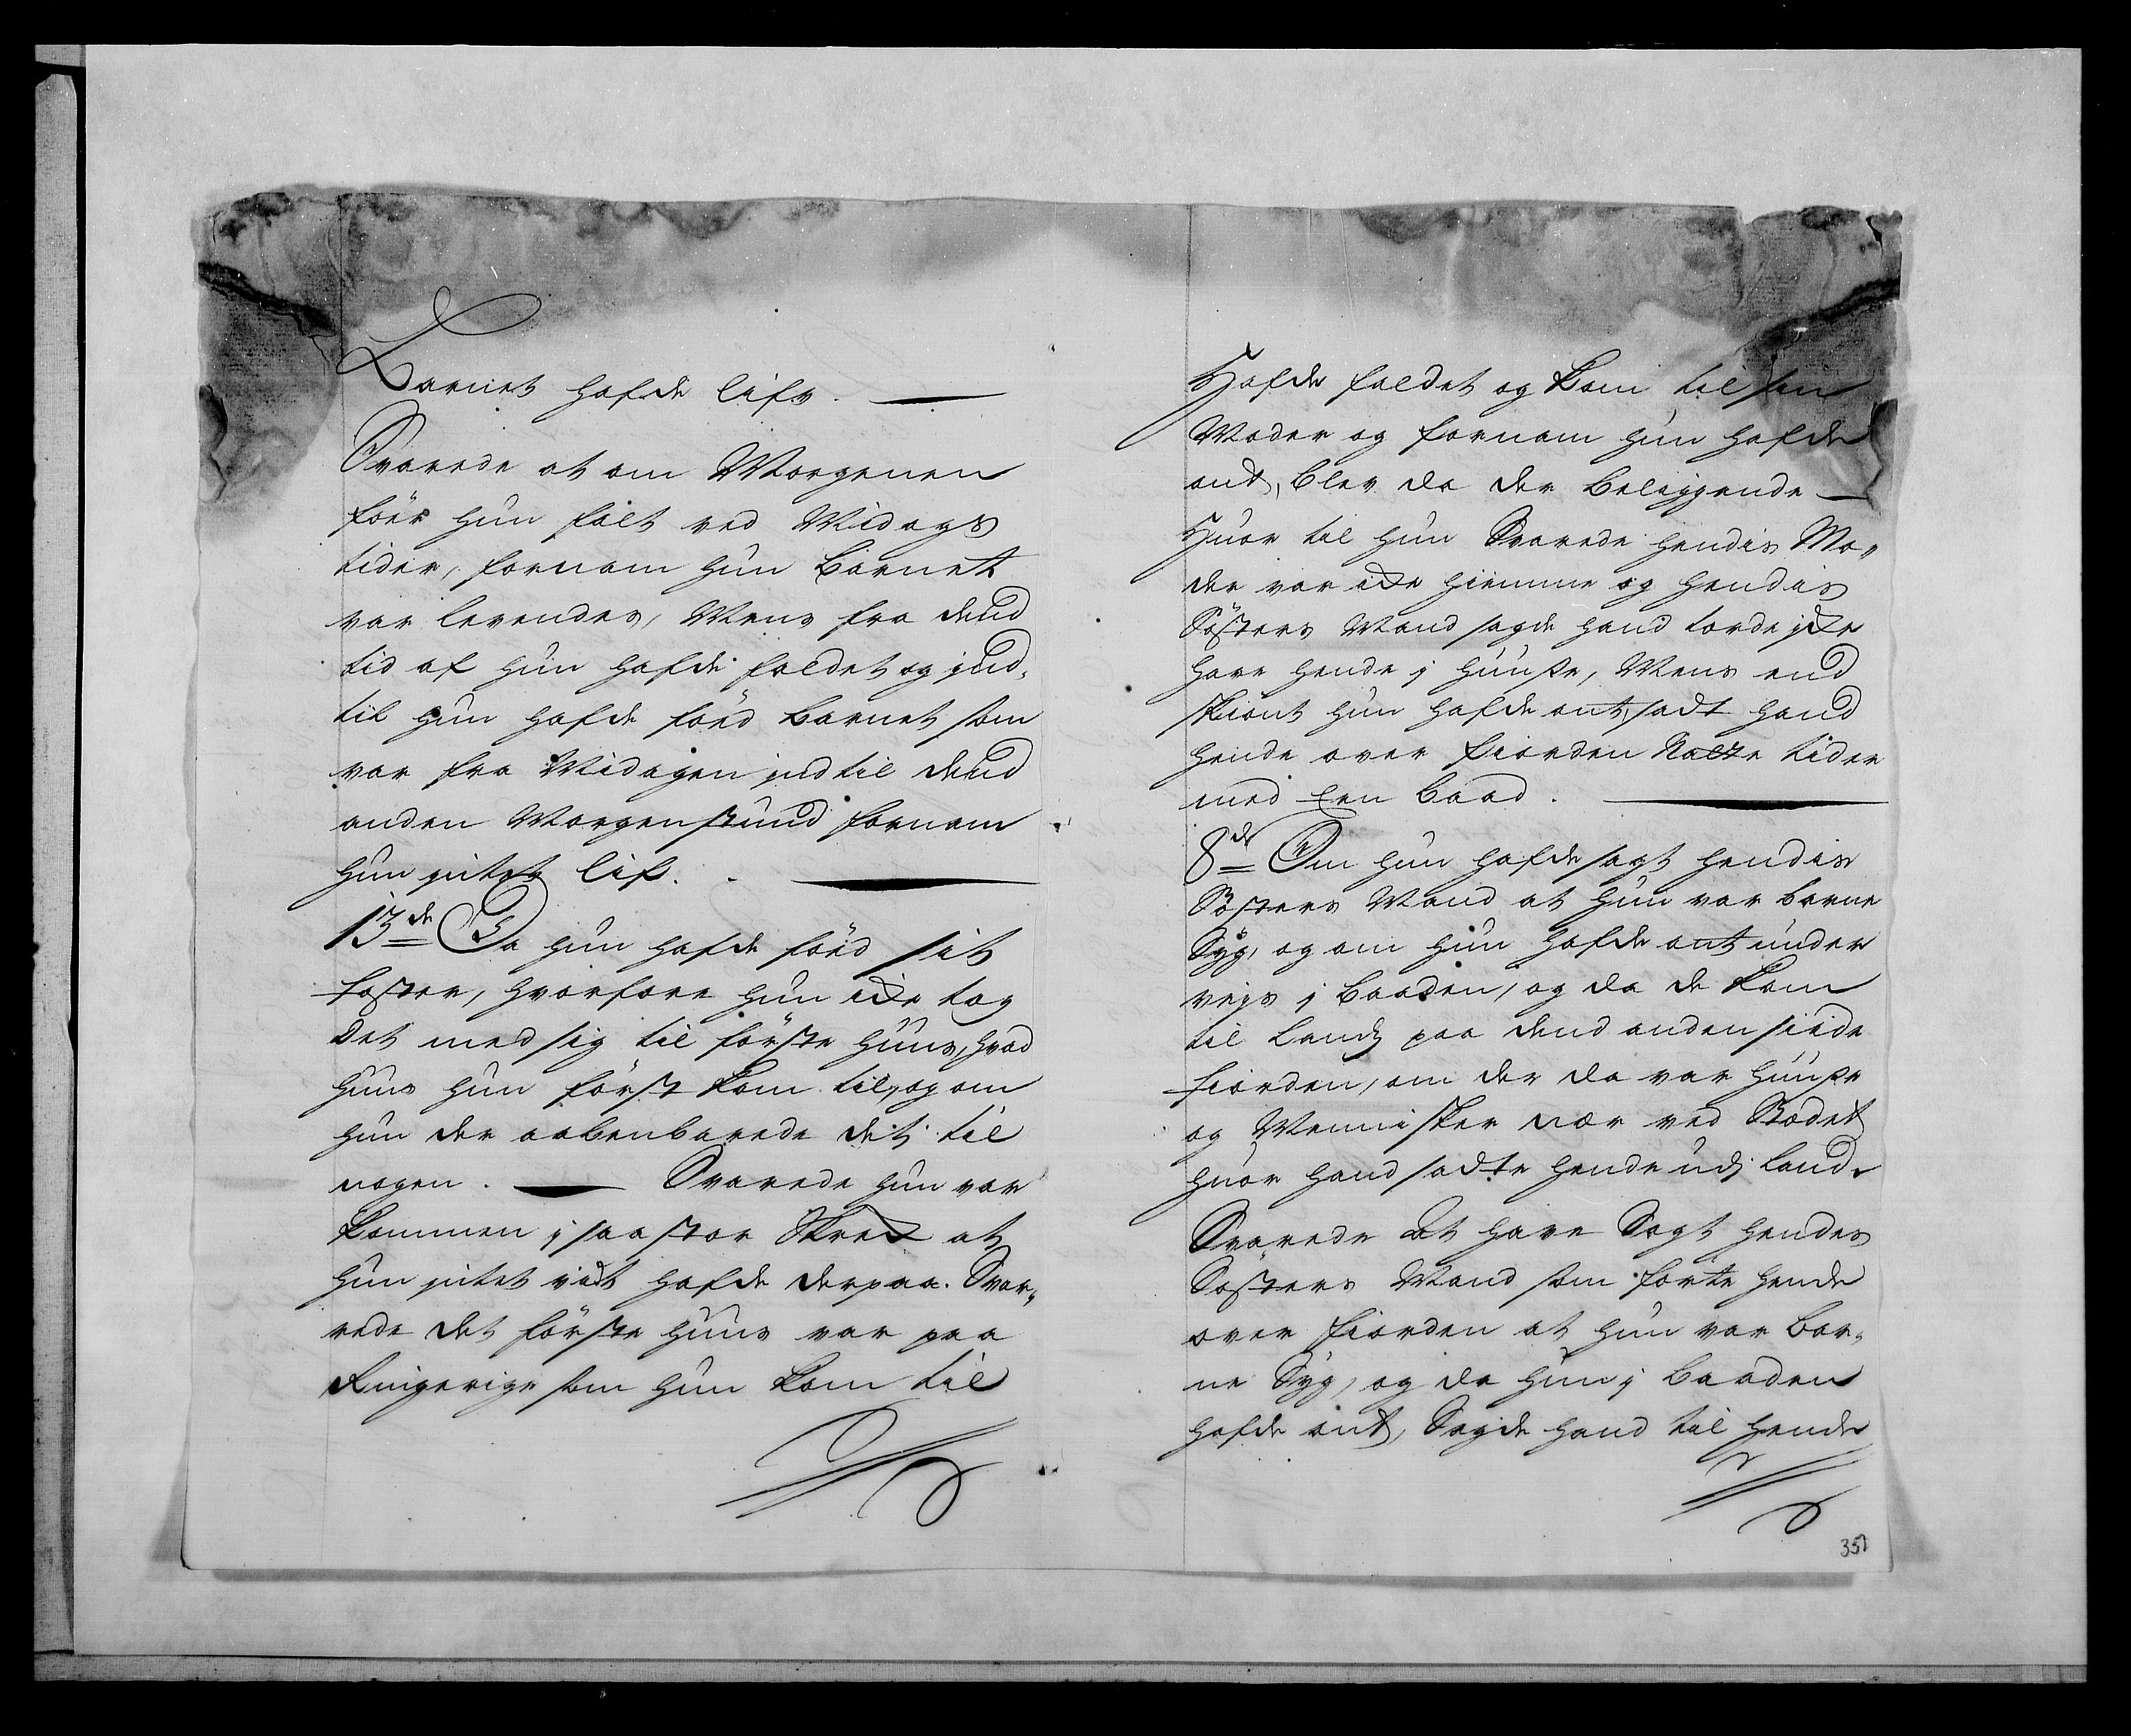 Barnet hafde lifv.
Svarede at om Morgenen
föer hun falt ved Midags
tider, fornam hun Barnet
var levendes, Mens fra dend
tid af hun hafde faldet og ind„
til hun hafde föed Barnet som
var fra Midagen indtil dend
anden Morgenstund fornam
hun intet lif.
13de Da hun hafde föed sit
foster, hvorfore hun icke tog
det med sig til förste huus, hvad
huus hun först kom til, og om
hun der aabenbarede det til
nogen. Svarede hun var
kommen i saa stor Skrek at
hun intet vidt hafde derpaa. Svar„
rede det förste huus var paa
Ringerige som hun kom til
Hafde faldet og kom til sin
Moder og fornam hun hafde
ont, blev da der beliggende
Huor til hun Svarede hendis Mo„
der var icke hiemme og hendis
Sösters Mand sagde hand torde icke
have hende i huuse, Mens end
skiönt hun hafde ont, sadt hand
hende over fiorden Natte tider
med Een baad.
8de Om hun hafde sagt hendis
Sösters Mand at hun var barne
Syg, og om hun hafde ont under
vejs i baaden, og da de kom
til landz paa dend anden siide
fiorden, om der da var huuse
og Mennisker nær ved Stædet
huor hand sadte hende udj land.
Svarede at have Sagt hendes
Sösters Mand som förte hende
over fiorden at hun var bar„
ne Syg, og da hun i baaden
hafde ont, Sagde hand til hende
351